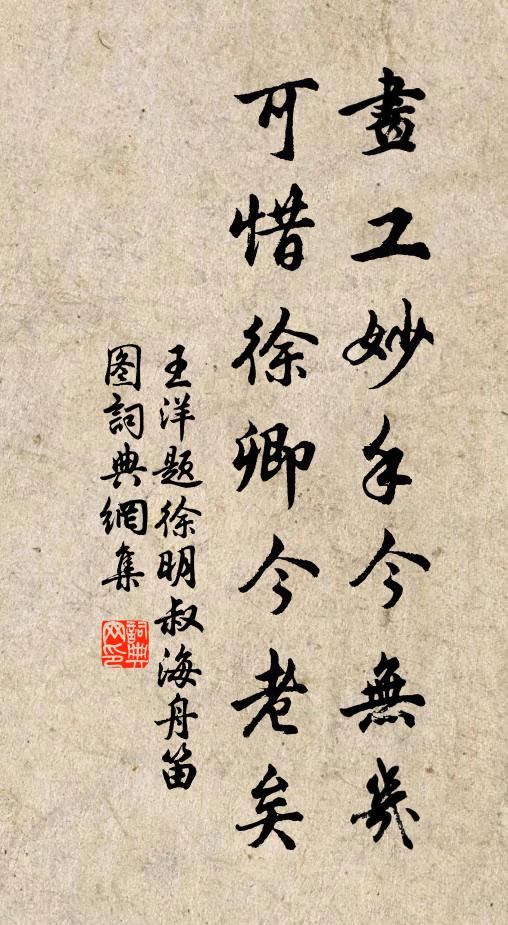 畫工妙手今無幾
可惜徐卿今老矣
王洋题徐明叔海舟笛
图詞典網集
詞典
网印